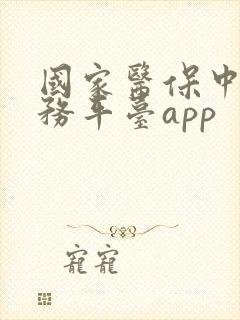 國家醫保中
務平臺app
寵寵